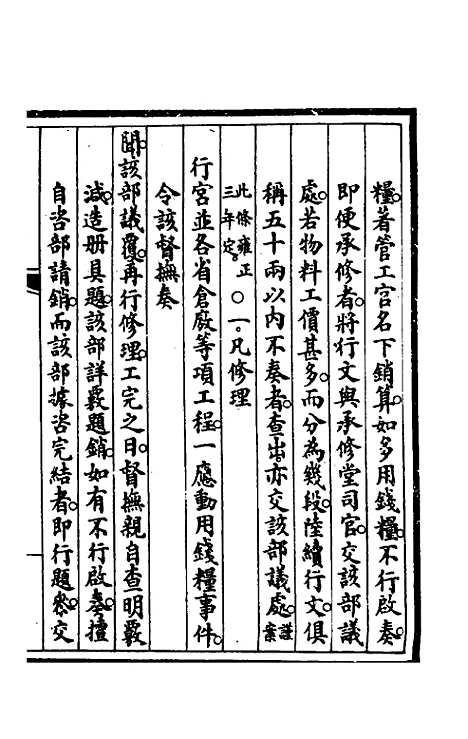 糧著管工官名下銷算如多用錢糧不行啟奏
即便承修者將行文與承修堂司官交該部議
處若物料工價甚多而分為幾段陸續行文俱
稱五十兩以內不奏者查出亦交該部議處謹案
此條雍正三年定〇一凡修理
行宮並各省倉廠等項工程一應動用錢糧事件
令該督撫奏
聞該部議覆再行修理工完之日督撫親自查明覈
減造册具題該部詳覈題銷如有不行啟奏擅
自咨部請銷而該部據咨完結者即行題叅交